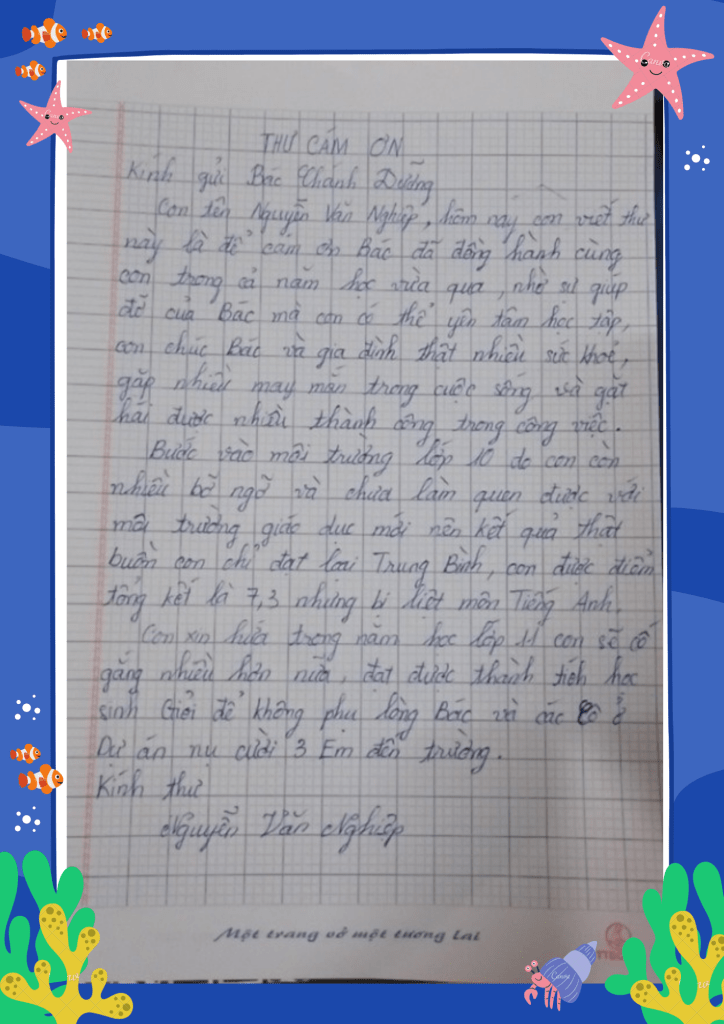 THƯ CÁM ƠN
Kính gửi Bác Chánh Dưỡng
Con tên Nguyễn Văn Nghiệp, hôm nay con viết thư
này là để cám ơn Bác đã đồng hành cùng
con trong cả năm học vừa qua, nhờ sự giúp
đỡ của Bác mà con có thể yên tâm học tập,
con chúc Bác và gia đình thật nhiều sức khoẻ,
gặp nhiều may mắn trong cuộc sống và gặt
hái được nhiều thành công trong công việc.
Bước vào môi trường lớp 10 do con còn
nhiều bỡ ngỡ và chưa làm quen được với
môi trường giáo dục mới nên kết quả thật
buồn con chỉ đạt loại Trung Bình, con được điểm
tổng kết là 7,3 nhưng bị liệt môn Tiếng Anh.
Con xin hứa trong năm học lớp 11 con sẽ cố
gắng nhiều hơn nữa, đạt được thành tích học
sinh Giỏi để không phụ lòng Bác và các Cô ở
Dự án nụ cười 3 Em đến trường.
Kính thư
Nguyễn Văn Nghiệp
Một trang vở một tương lai